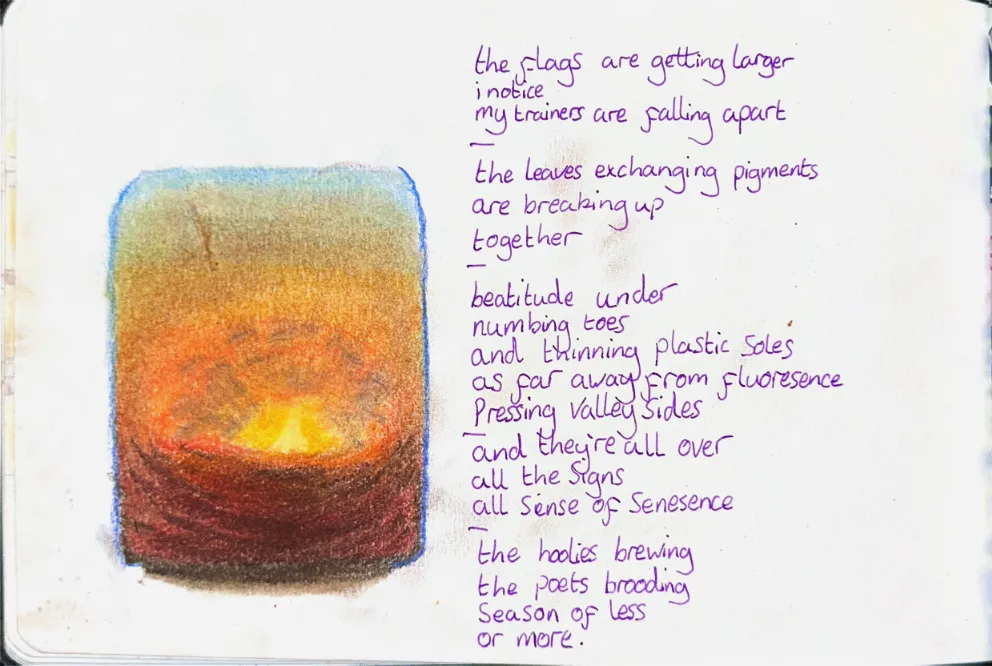 the flags are getting larger
i notice
my trainers are falling apart
—
the leaves exchanging pigments
are breaking up
together
—
beatitude under
numbing toes
and thinning plastic soles
as far away from fluoresence
Pressing Valley Sides
—
and they're all over
all the Signs
all Sense of Senesence
—
the hoolies brewing
the poets brooding
Season of less
or more.